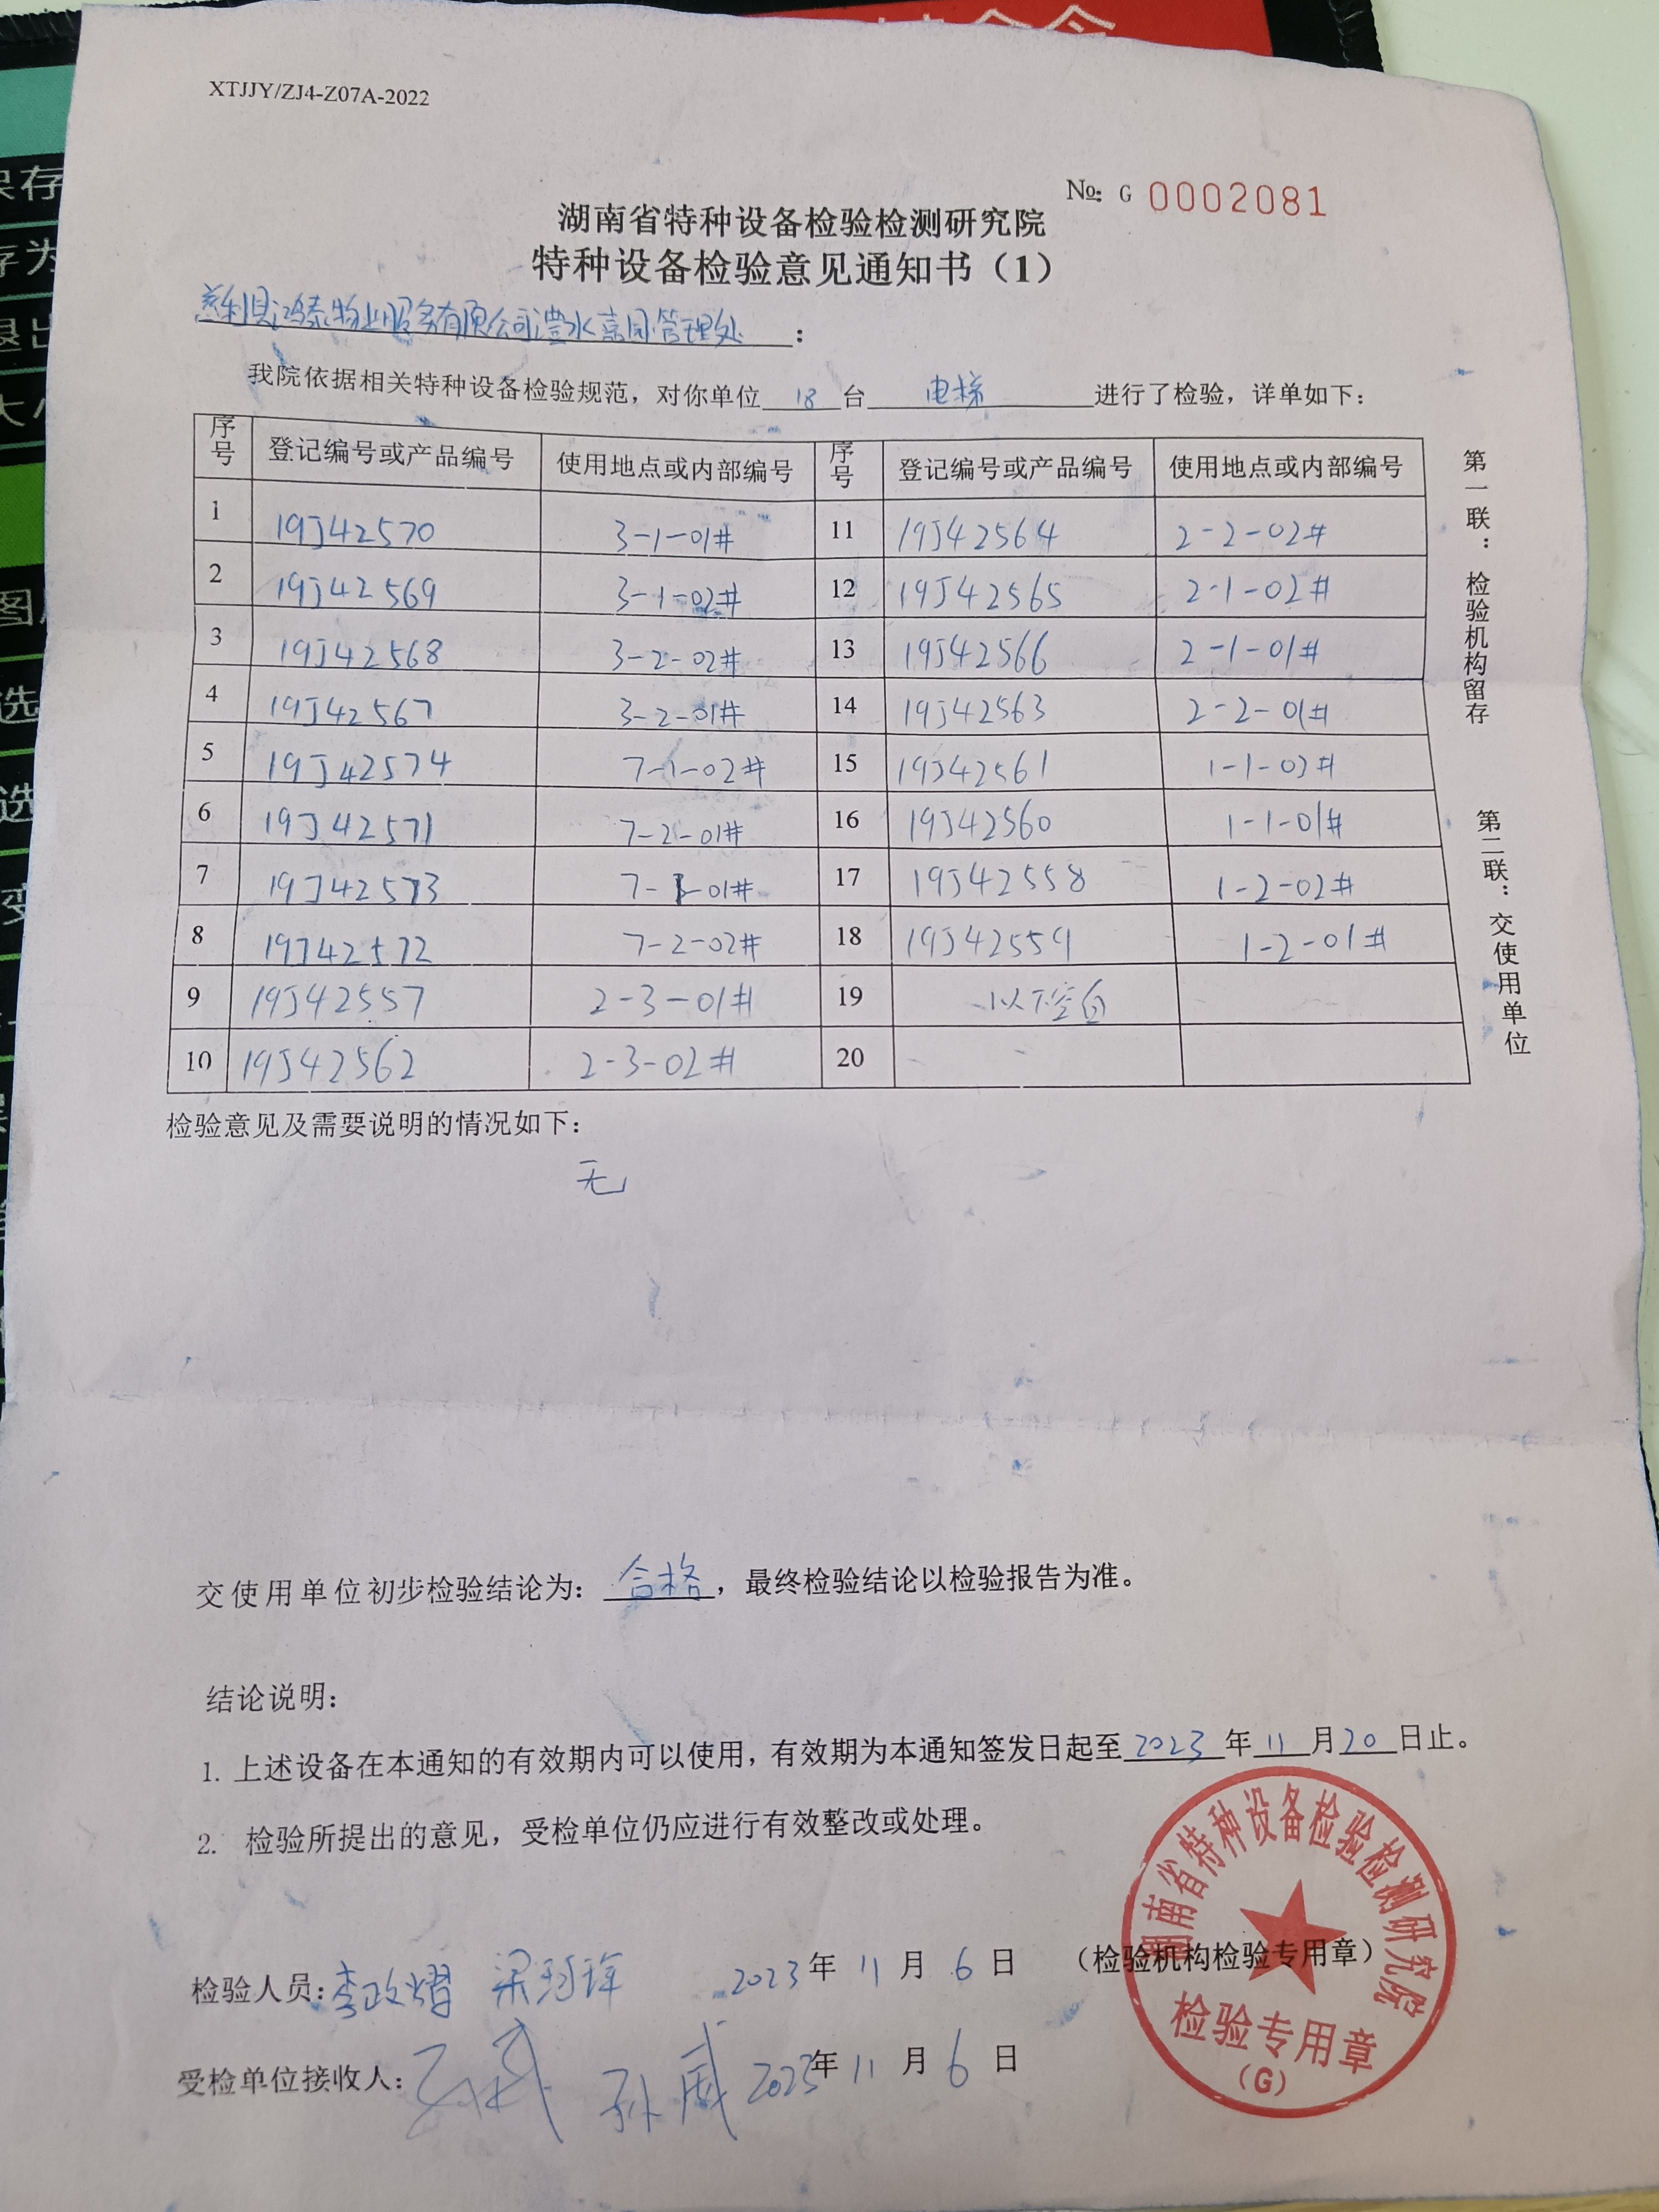 XTJJY/ZJ4-Z07A-2022
№: G 0002081
湖南省特种设备检验检测研究院
特种设备检验意见通知书（1）
慈利县鸿泰物业服务有限公司澧水嘉园管理处：
我院依据相关特种设备检验规范，对你单位 18 台 电梯 进行了检验，详单如下：
序号 登记编号或产品编号 使用地点或内部编号 序号 登记编号或产品编号 使用地点或内部编号
1 19J42570 3-1-01# 11 19J42564 2-2-02#
2 19J42569 3-1-02# 12 19J42565 2-1-02#
3 19J42568 3-2-02# 13 19J42566 2-1-01#
4 19J42567 3-2-01# 14 19J42563 2-2-01#
5 19J42574 7-1-02# 15 19J42561 1-1-02#
6 19J42571 7-2-01# 16 19J42560 1-1-01#
7 19J42573 7-1-01# 17 19J42558 1-2-02#
8 19J42572 7-2-02# 18 19J42559 1-2-01#
9 19J42557 2-3-01# 19 以下空白
10 19J42562 2-3-02# 20
第一联：检验机构留存
第二联：交使用单位
检验意见及需要说明的情况如下：
无
交使用单位初步检验结论为：合格，最终检验结论以检验报告为准。
结论说明：
1. 上述设备在本通知的有效期内可以使用，有效期为本通知签发日起至2023年11月20日止。
2. 检验所提出的意见，受检单位仍应进行有效整改或处理。
检验人员：李政熠 2023年11月6日 （检验机构检验专用章）
受检单位接收人： 孙威 2023年11月6日
湖南省特种设备检验检测研究院
检验专用章
（G）